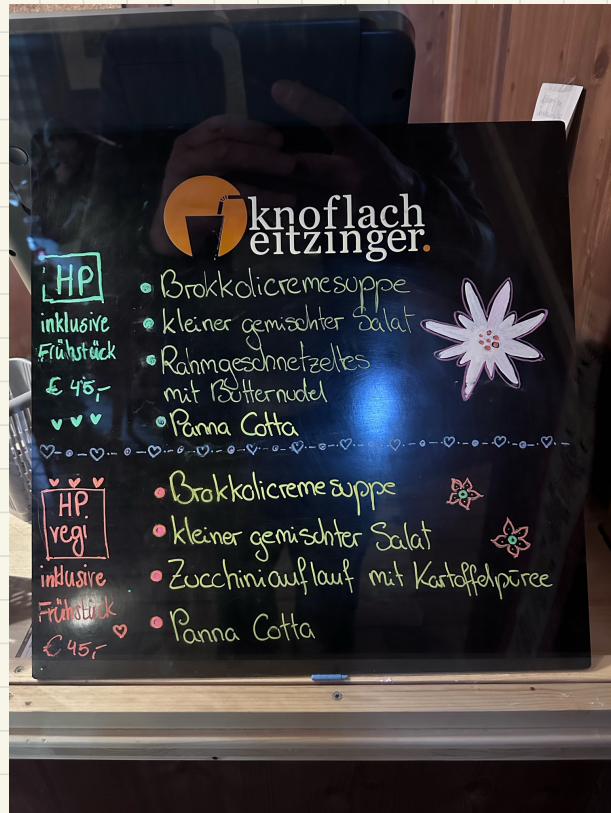 knoflach
eitzinger.
HP
inklusive
Frühstück
€ 45,-
• Brokkolicremesuppe
• kleiner gemischter Salat
• Rahmgeschnetzeltes
mit Butternudel
• Panna Cotta
HP
vegi
inklusive
Frühstück
€ 45,-
• Brokkolicremesuppe
• kleiner gemischter Salat
• Zucchiniauflauf mit Kartoffelpüree
• Panna Cotta